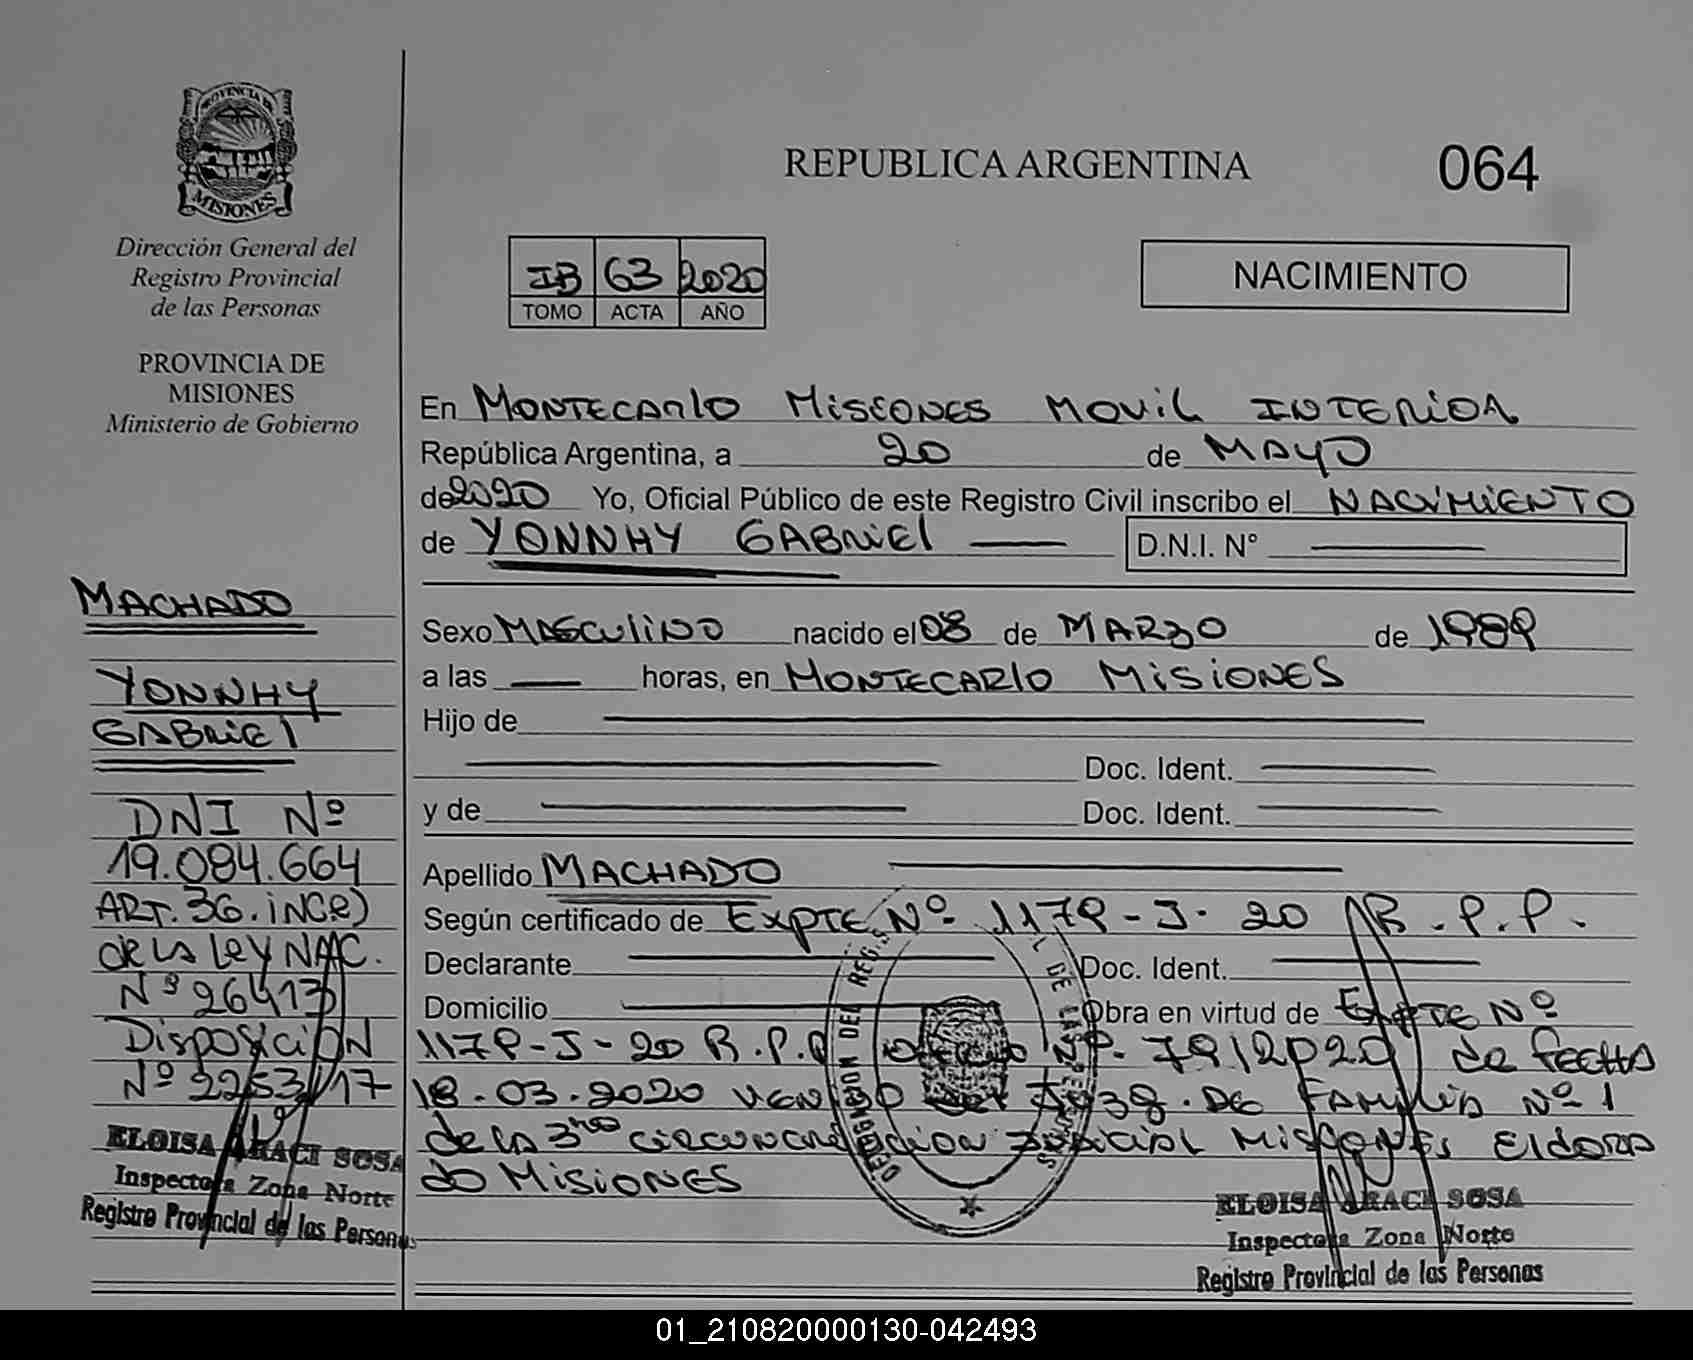 PROVINCIA DE
MISIONES
Dirección General del
Registro Provincial
de las Personas
PROVINCIA DE
MISIONES
Ministerio de Gobierno
MACHADO
YONNHY
GABRIEL
DNI Nº
19.084.664
ART. 36. inc e)
de la Ley NAC.
Nº 26413
Disposición
Nº 2253/17
ELOISA ARACI SOSA
Inspectora Zona Norte
Registro Provincial de las Personas
REPUBLICA ARGENTINA
064
IB 63 2020
TOMO ACTA AÑO
NACIMIENTO
En MONTECARLO MISIONES MOVIL INTERIOR
República Argentina, a 20 de MAYO
de 2020 Yo, Oficial Público de este Registro Civil inscribo el NACIMIENTO
de YONNHY GABRIEL D.N.I. N°
Sexo MASCULINO nacido el 08 de MARZO de 1989
a las horas, en MONTECARLO MISIONES
Hijo de
Doc. Ident.
y de Doc. Ident.
Apellido MACHADO
Según certificado de EXPTE Nº 1179-J-20 R.P.P.
Declarante Doc. Ident.
Domicilio Obra en virtud de EXPTE Nº
1179-J-20 R.P.P Nº 79/2020 de FECHA
18.03.2020 DE FAMILIA Nº 1
de la 3ra circunscripcion Judicial MISIONES Eldora
do MISIONES
ELOISA ARACI SOSA
Inspectora Zona Norte
Registro Provincial de las Personas
01_210820000130-042493